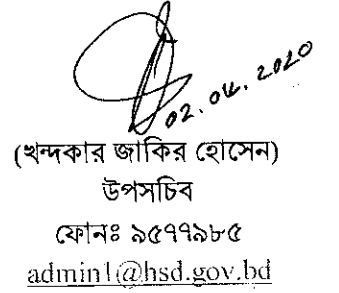 02.04.2020
(খন্দকার জাকির হোসেন)
উপসচিব
ফোনঃ ৯৫৭৭৯৮৫
admin1@hsd.gov.bd